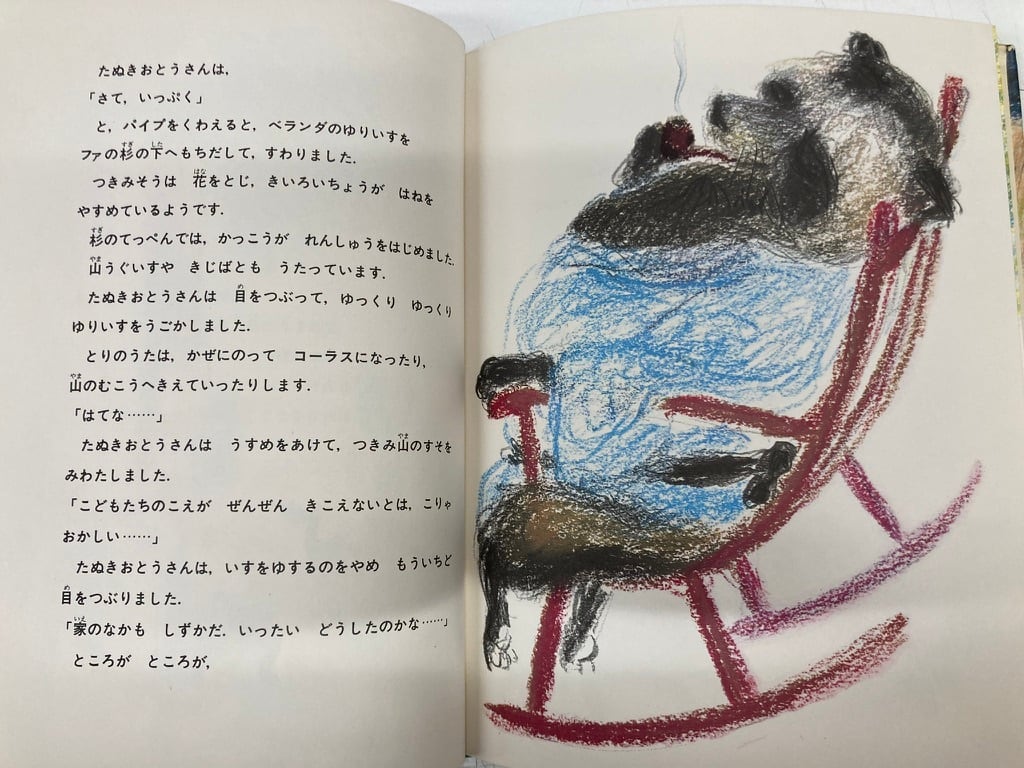 たぬきおとうさんは，
「さて，いっぷく」
と，パイプをくわえると，ベランダのゆりいすを
ファの杉の下へもちだして，すわりました．
つきみそうは　花をとじ，きいろいちょうが　はねを
やすめているようです．
杉のてっぺんでは，かっこうが　れんしゅうをはじめました．
山うぐいすや　きじばとも　うたっています．
たぬきおとうさんは　目をつぶって，ゆっくり　ゆっくり
ゆりいすをうごかしました．
とりのうたは，かぜにのって　コーラスになったり，
山のむこうへきえていったりします．
「はてな……」
たぬきおとうさんは　うすめをあけて，つきみ山のすそを
みわたしました．
「こどもたちのこえが　ぜんぜん　きこえないとは，こりゃ
おかしい……」
たぬきおとうさんは，いすをゆするのをやめ　もういちど
目をつぶりました．
「家のなかも　しずかだ．いったい　どうしたのかな……」
ところが　ところが，